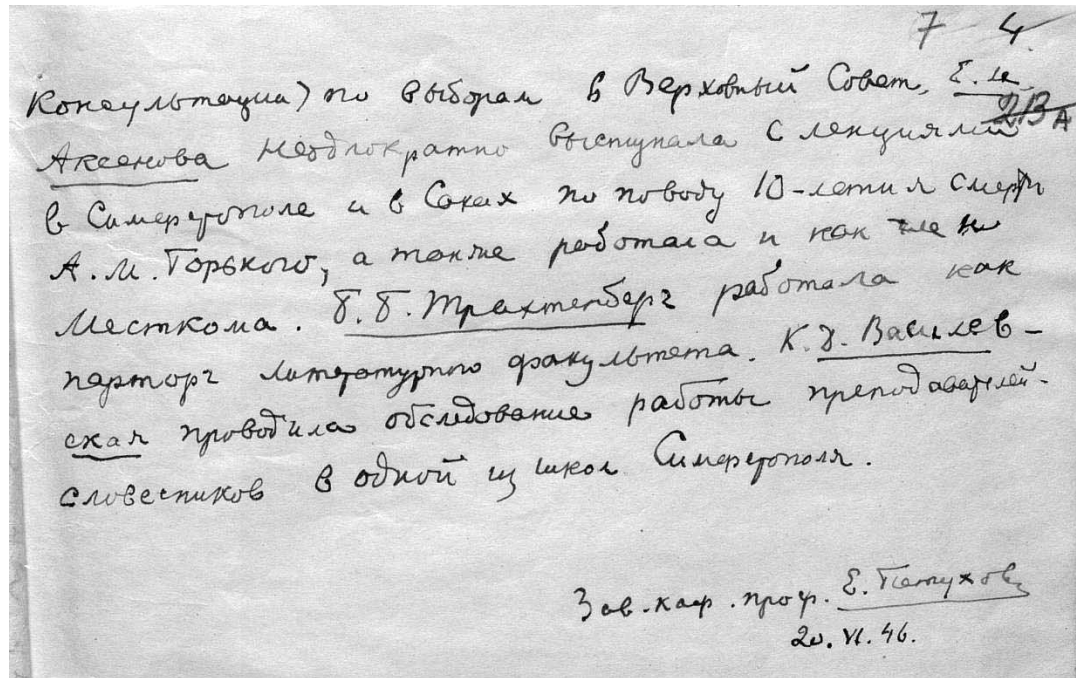 7 4
Консультации) по выборам в Верховный Совет. Е.
Аксенова неоднократно выступала с лекциями
в Симферополе и в Саках по поводу 10-летия смерти
А.М. Горького, а также работала и как член
Месткома. Б.Б. Трахтенберг работала как
парторг литературного факультета. К.Д. Василев-
ская проводила обследование работы преподавателей-
словесников в одной из школ Симферополя.
Зав. каф. проф. Е. Петухов
20. VI. 46.